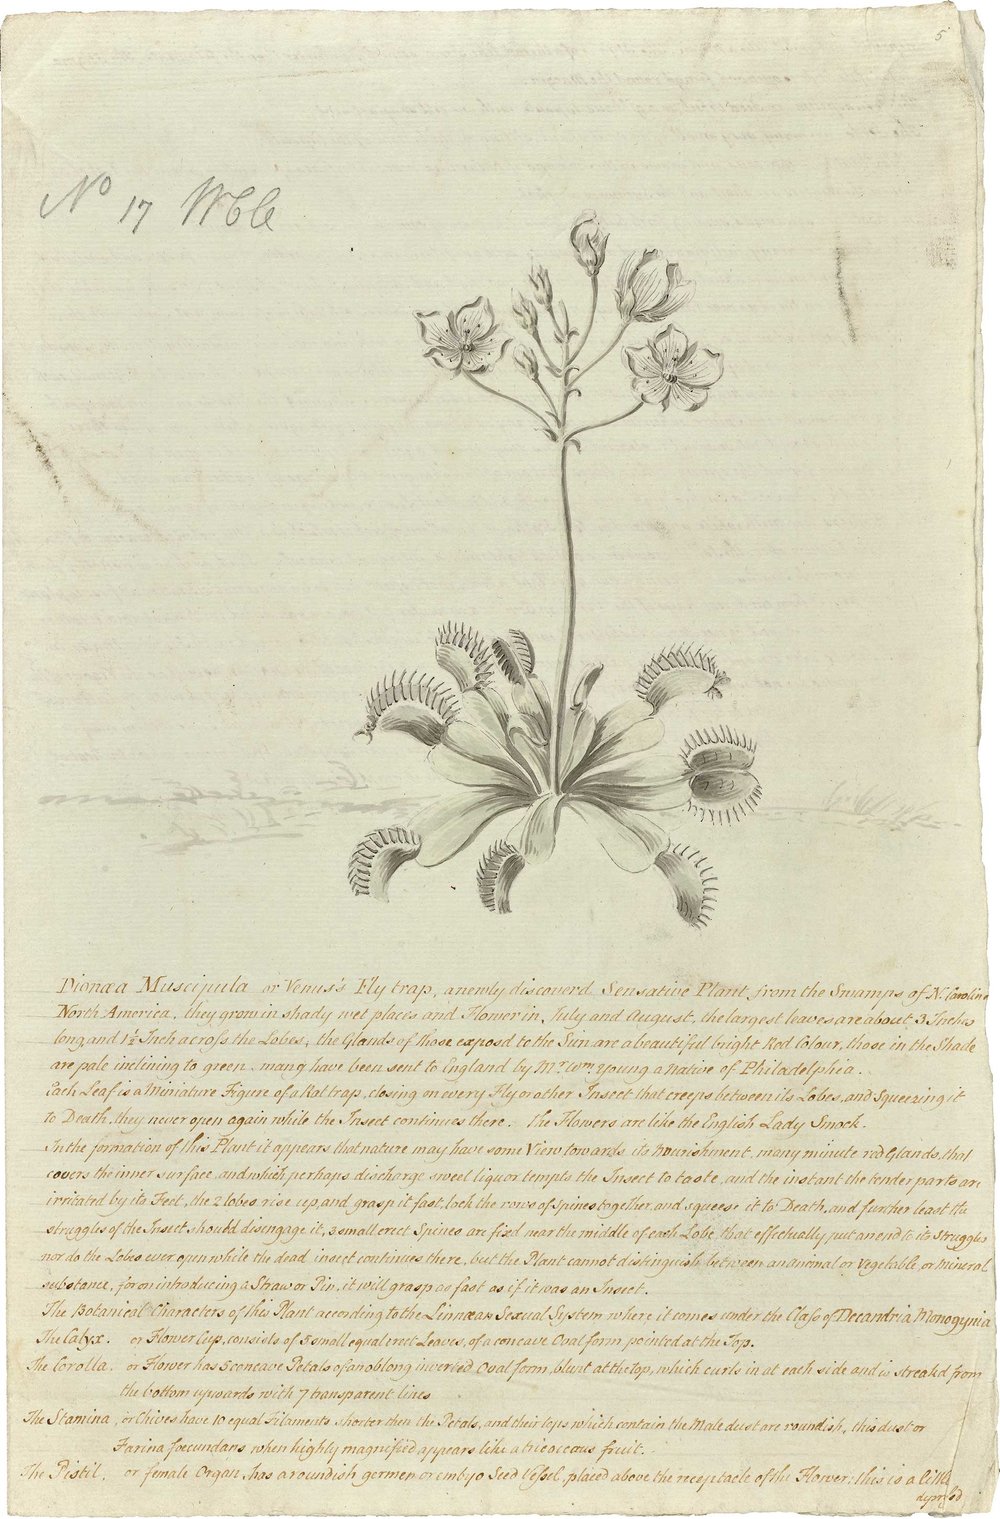 5
No 17 Whle
Dionæa Muscipula or Venus's Fly trap, a newly discoverd Sensative Plant from the Swamps of N. Caroline
North America, they grow in shady wet places and Flower in July and August, the largest leaves are about 3 Inches
long and 1½ Inch across the Lobes; the Glands of those exposd to the Sun are a beautiful bright Red Colour, those in the Shade
are pale inclining to green. many have been sent to England by Mr. Wm. Young a native of Philadelphia.
Each Leaf is a Miniature Figure of a Rat trap, closing on every Fly or other Insect that creeps between its Lobes, and Squeezing it
to Death, they never open again while the Insect continues there. the Flowers are like the English Lady Smock.
In the formation of this Plant it appears that nature may have some View towards its Nourishment, many minute red Glands, that
covers the inner surface, and which perhaps discharge sweet liquor tempts the Insect to taste, and the instant the tender parts are
irritated by its Feet, the 2 lobes rise up, and grasp it fast, lock the rows of spines together, and squeese it to Death, and further least the
struggles of the Insect should disengage it, 3 small erect Spines are fixd near the middle of each Lobe, that effectually put an end to its Struggles
nor do the Lobes ever open while the dead insect continues there, but the Plant cannot distinguish between an animal or vegetable or mineral
substance, for on introducing a Straw or Pin, it will grasp as fast as if it was an Insect.
The Botanical Characters of this Plant according to the Linnæan Sexual System where it comes under the Class of Decandria Monogynia
The Calyx. or Flower Cup, consists of 5 small equal erect Leaves, of a concave Oval form pointed at the Top.
The Corolla. or Flower has 5 concave Petals of an oblong inverted Oval form, blunt at the top, which curls in at each side and is streakd from
the bottom upwards with 7 transparent lines
The Stamina, or Chives have 10 equal Filaments shorter then the Petals, and their tops which contain the Male dust are roundish, this dust or
Farina fœcundans when highly magnified appears like a tricoccous fruit.
The Pistil. or female Organ, has a roundish germen or embryo Seed Vessel, placed above the receptacle of the Flower: this is a little